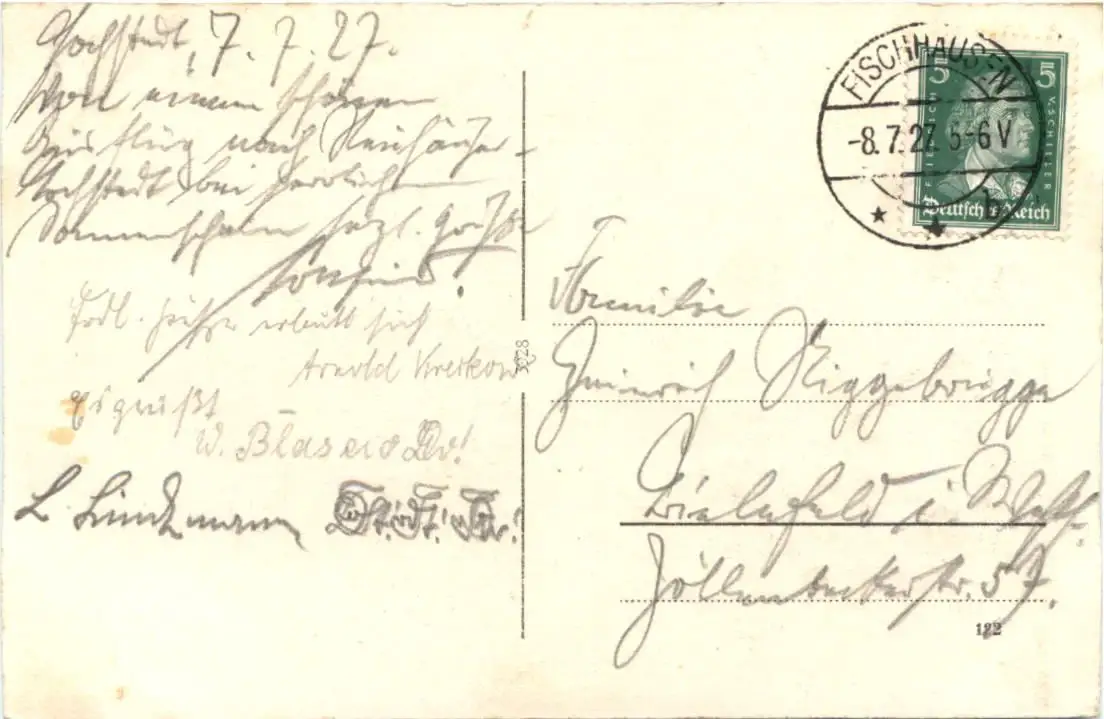 Lochstedt, 7. 7. 27.
Von einem schönen
Ausflug nach Neuhäuser-
Lochstedt bei herrlichem
Sonnenschein herzl. Grüße
Frdl. Grüße erlaubt sich
Arnold
Es grüßt
W. Blasero
L. Lindemann
3028
FISCHHAUSEN
-8.7.27. 5-6 V
5 5
FRIEDRICH V. SCHILLER
Deutsches Reich
Familie
Heinrich Niggebrügge
Bielefeld i. Westf.
Jöllenbeckerstr. 57.
122